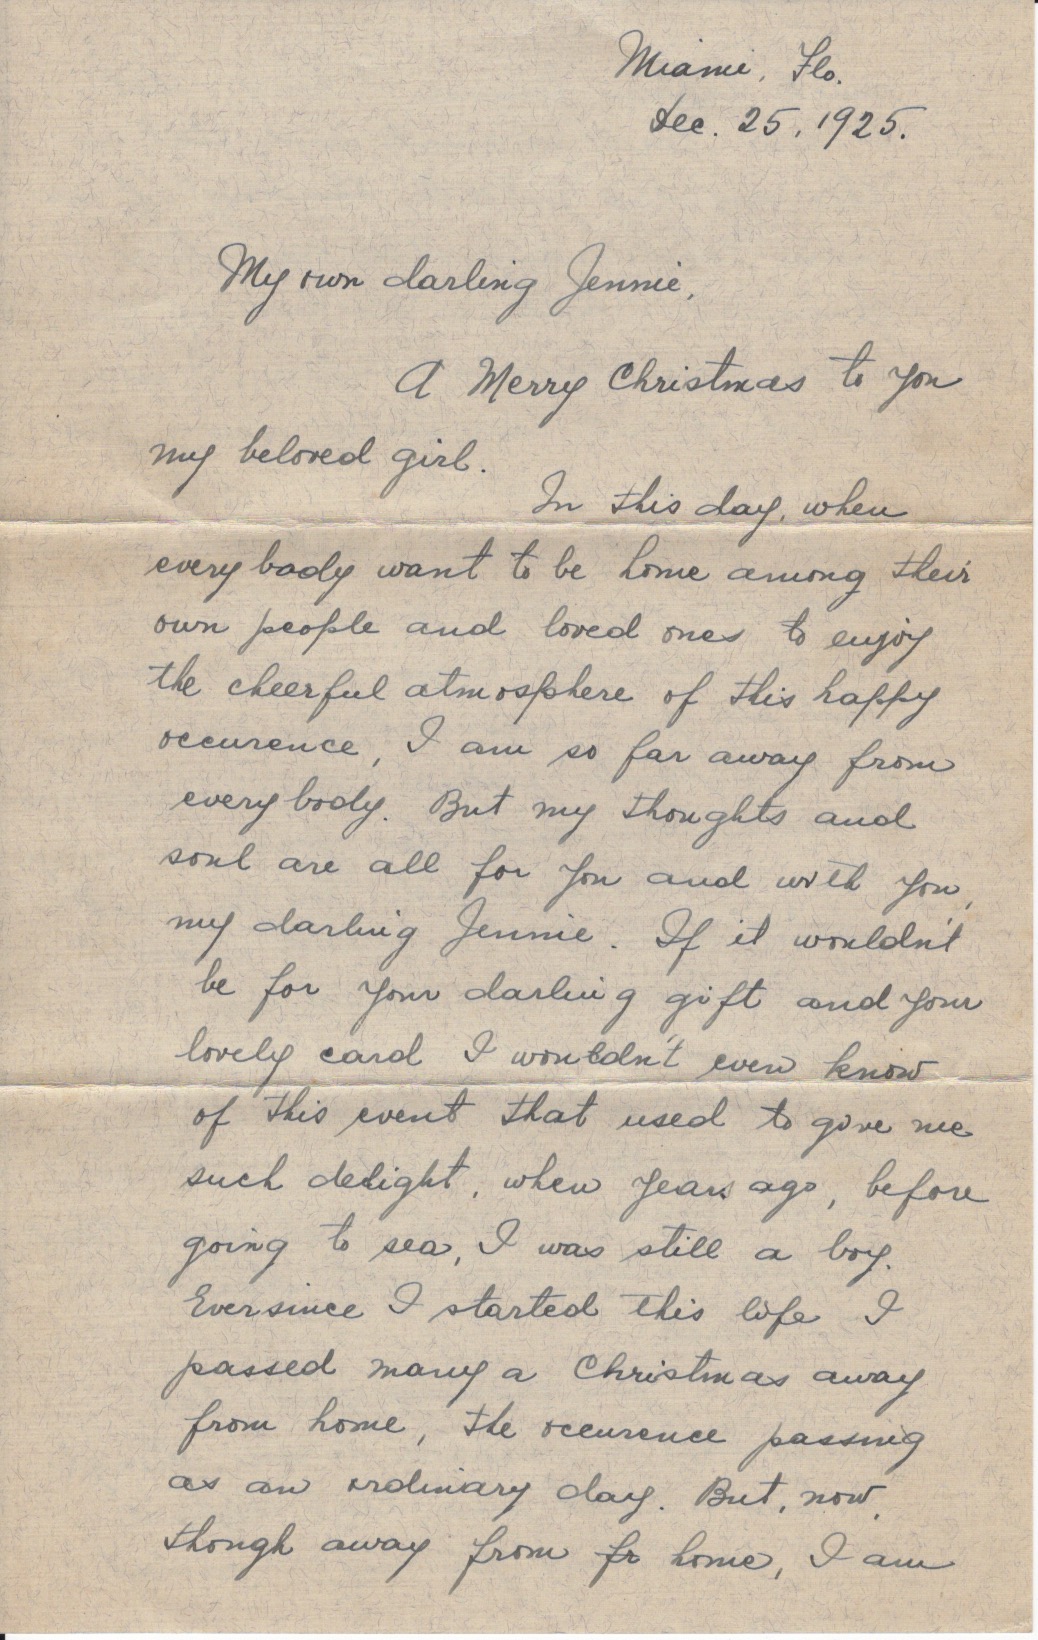 Miami, Flo.
Dec. 25, 1925.
My own darling Jennie,
A Merry Christmas to you
my beloved girl.
In this day, when
everybody want to be home among their
own people and loved ones to enjoy
the cheerful atmosphere of this happy
occurence, I am so far away from
everybody. But my thoughts and
soul are all for you and with you,
my darling Jennie. If it wouldn't
be for your darling gift and your
lovely card I wouldn't even know
of this event that used to give me
such delight, when years ago, before
going to sea, I was still a boy.
Eversince I started this life I
passed many a Christmas away
from home, the occurence passing
as an ordinary day. But, now,
though away from fr home, I am